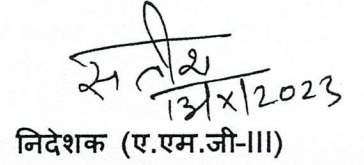 सतीश
13/X/2023
निदेशक (ए.एम.जी-III)